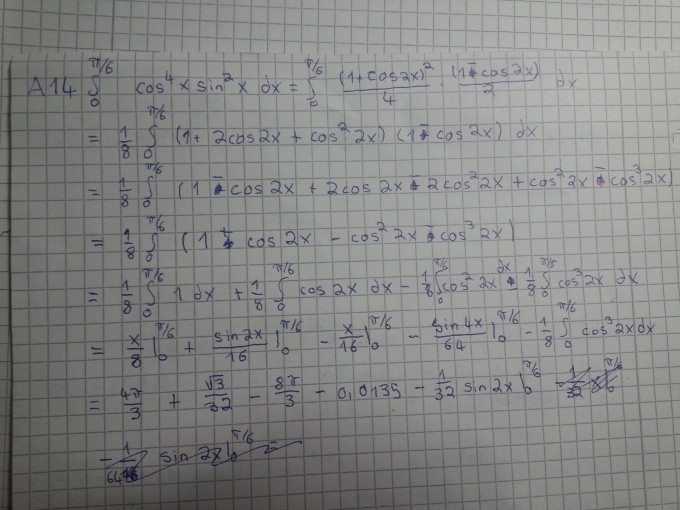 A14 ∫₀^{π/6} cos⁴x sin²x dx = ∫₀^{π/6} (1+cos2x)²/4 · (1-cos2x)/2 dx
= 1/8 ∫₀^{π/6} (1+ 2cos2x + cos²2x) (1- cos2x) dx
= 1/8 ∫₀^{π/6} (1 - cos2x + 2cos2x - 2cos²2x + cos²2x - cos³2x)
= 1/8 ∫₀^{π/6} (1 + cos2x - cos²2x - cos³2x)
= 1/8 ∫₀^{π/6} 1 dx + 1/8 ∫₀^{π/6} cos2x dx - 1/8 ∫₀^{π/6} cos²2x dx - 1/8 ∫₀^{π/6} cos³2x dx
= x/8 |₀^{π/6} + sin2x/16 |₀^{π/6} - x/16 |₀^{π/6} - sin4x/64 |₀^{π/6} - 1/8 ∫₀^{π/6} cos³2x dx
= 4π/3 + √3/32 - 8π/3 - 0,0135 - 1/32 sin2x |₀^{π/6}
sin2x |₀^{π/6} =